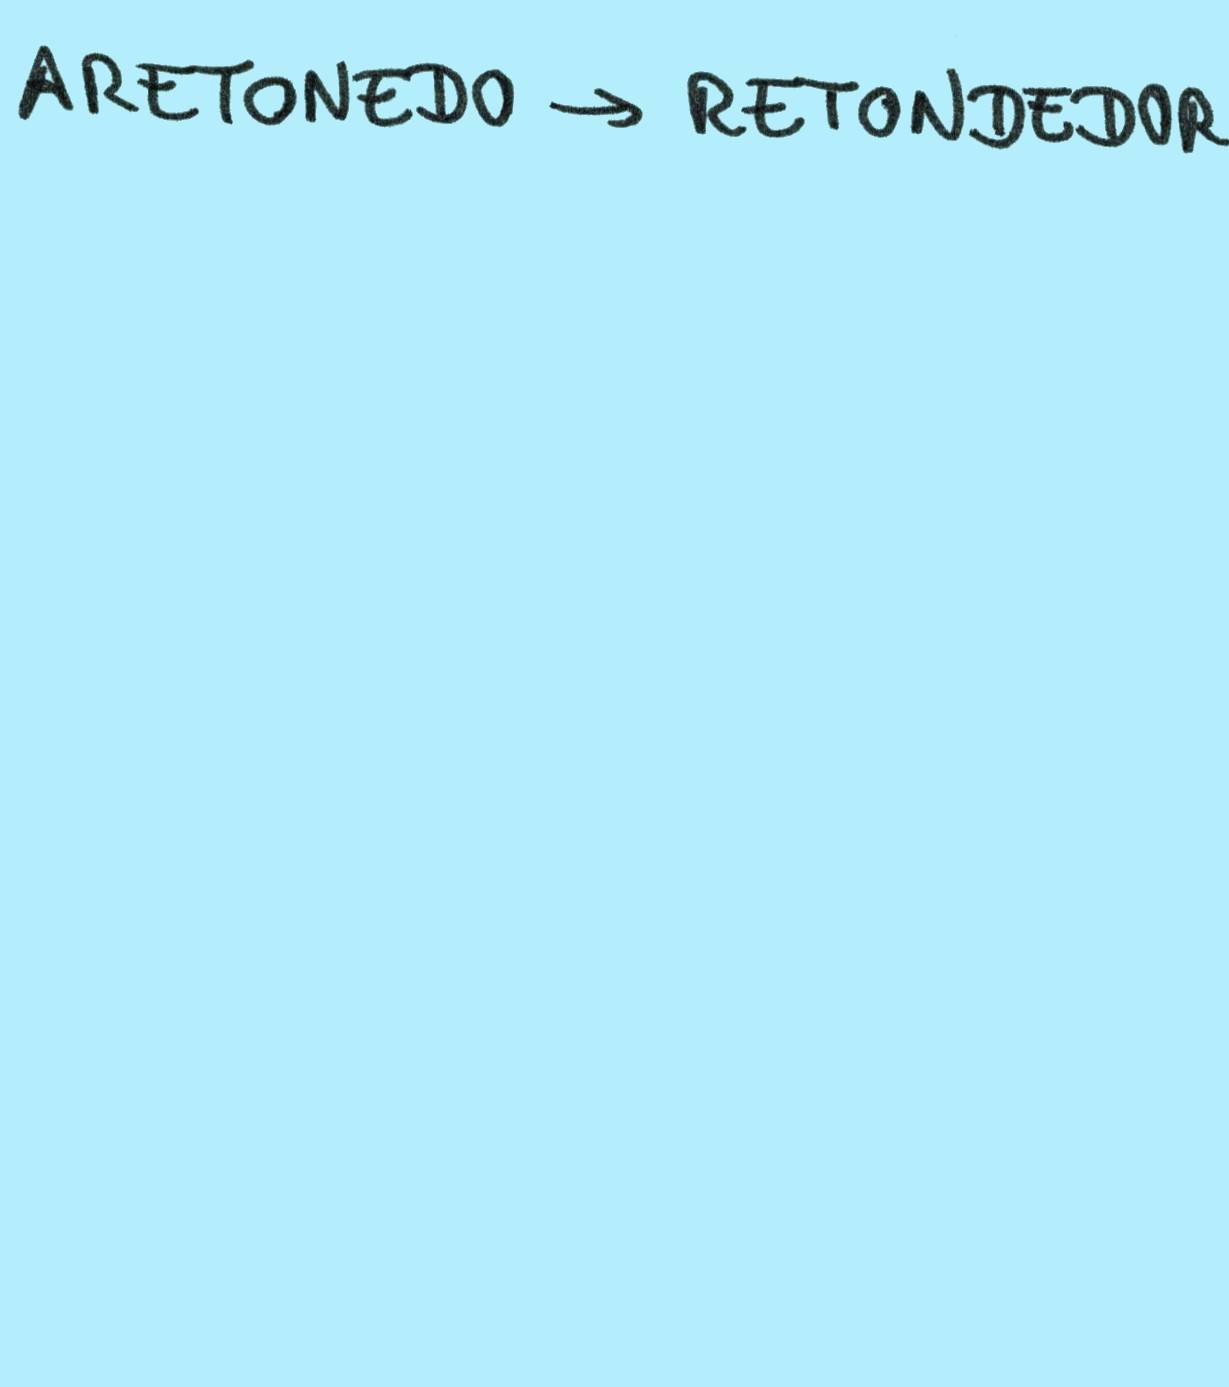 ARETONEDO → RETONDEDOR